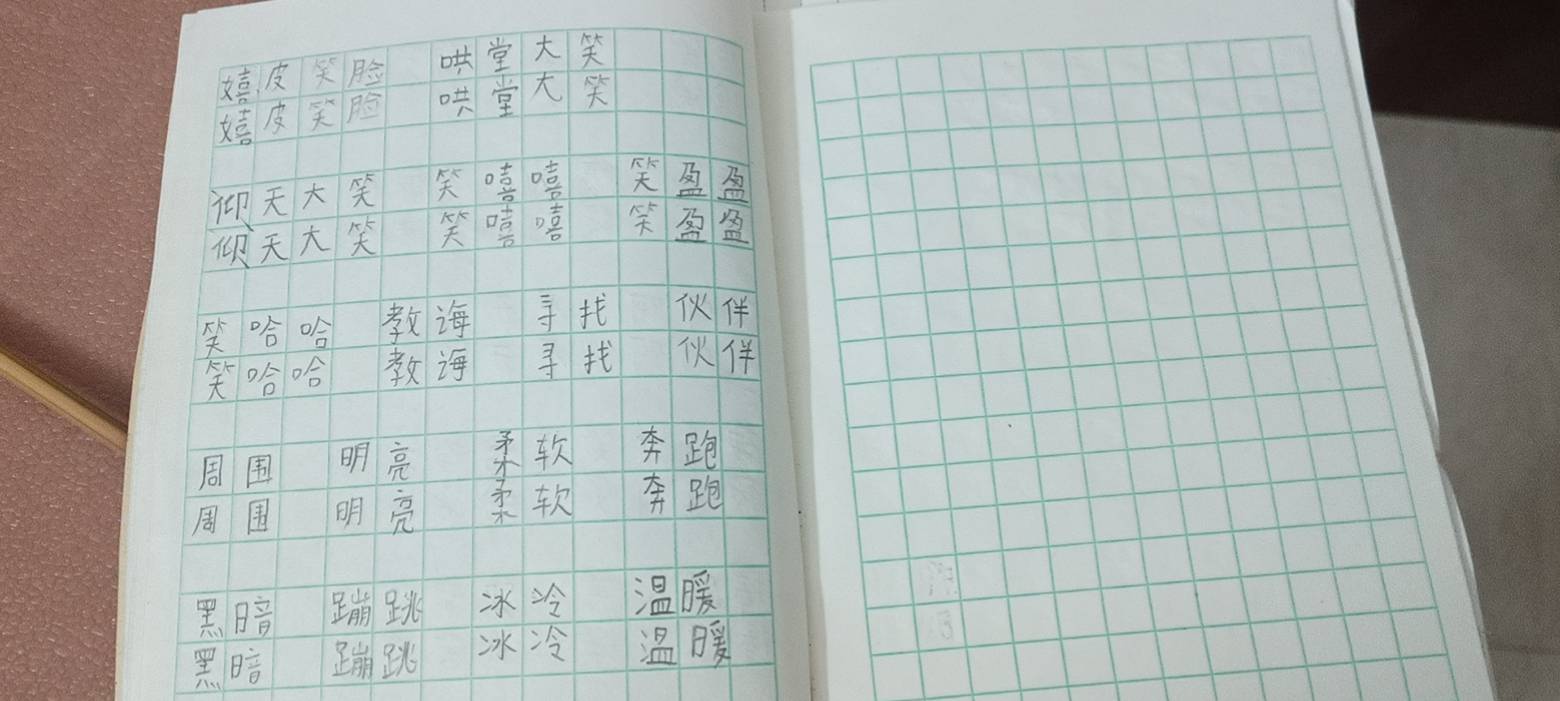 嬉皮笑脸 哄堂大笑
嬉皮笑脸 哄堂大笑
仰天大笑 笑嘻嘻 笑盈盈
仰天大笑 笑嘻嘻 笑盈盈
笑哈哈 教诲 寻找 伙伴
笑哈哈 教诲 寻找 伙伴
周围 明亮 柔软 奔跑
周围 明亮 柔软 奔跑
黑暗 蹦跳 冰冷 温暖
黑暗 蹦跳 冰冷 温暖